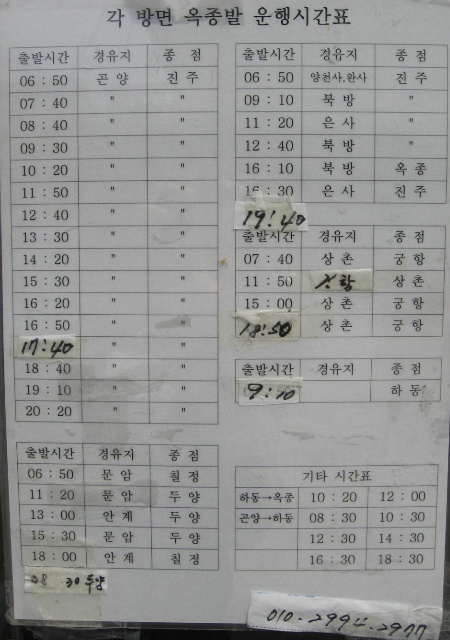 각 방면 옥종발 운행시간표
출발시간 경유지 종 점
06 : 50 곤 양 진 주
07 : 40 " "
08 : 40 " "
09 : 30 " "
10 : 20 " "
11 : 50 " "
12 : 40 " "
13 : 30 " "
14 : 20 " "
15 : 30 " "
16 : 20 " "
16 : 50 " "
17:40 " "
18 : 40 " "
19 : 10 " "
20 : 20 " "
출발시간 경유지 종 점
06 : 50 문 암 칠 정
11 : 20 문 암 두 양
13 : 00 안 계 두 양
15 : 30 문 암 두 양
18 : 00 안 계 칠 정
08 30 두양
출발시간 경유지 종 점
06 : 50 양천사,완사 진 주
09 : 10 북 방 "
11 : 20 은 사 "
12 : 40 북 방 "
16 : 10 북 방 옥 종
16 : 30 은 사 진 주
19:40
출발시간 경유지 종 점
07 : 40 상 촌 궁 항
11 : 50 상 촌
15 : 00 상 촌 궁 항
18:50 상 촌 궁 항
출발시간 경유지 종 점
9:10 하 동
기타 시간표
하동→옥종 10 : 20 12 : 00
곤양→하동 08 : 30 10 : 30
12 : 30 14 : 30
16 : 30 18 : 30
010-2994-2977